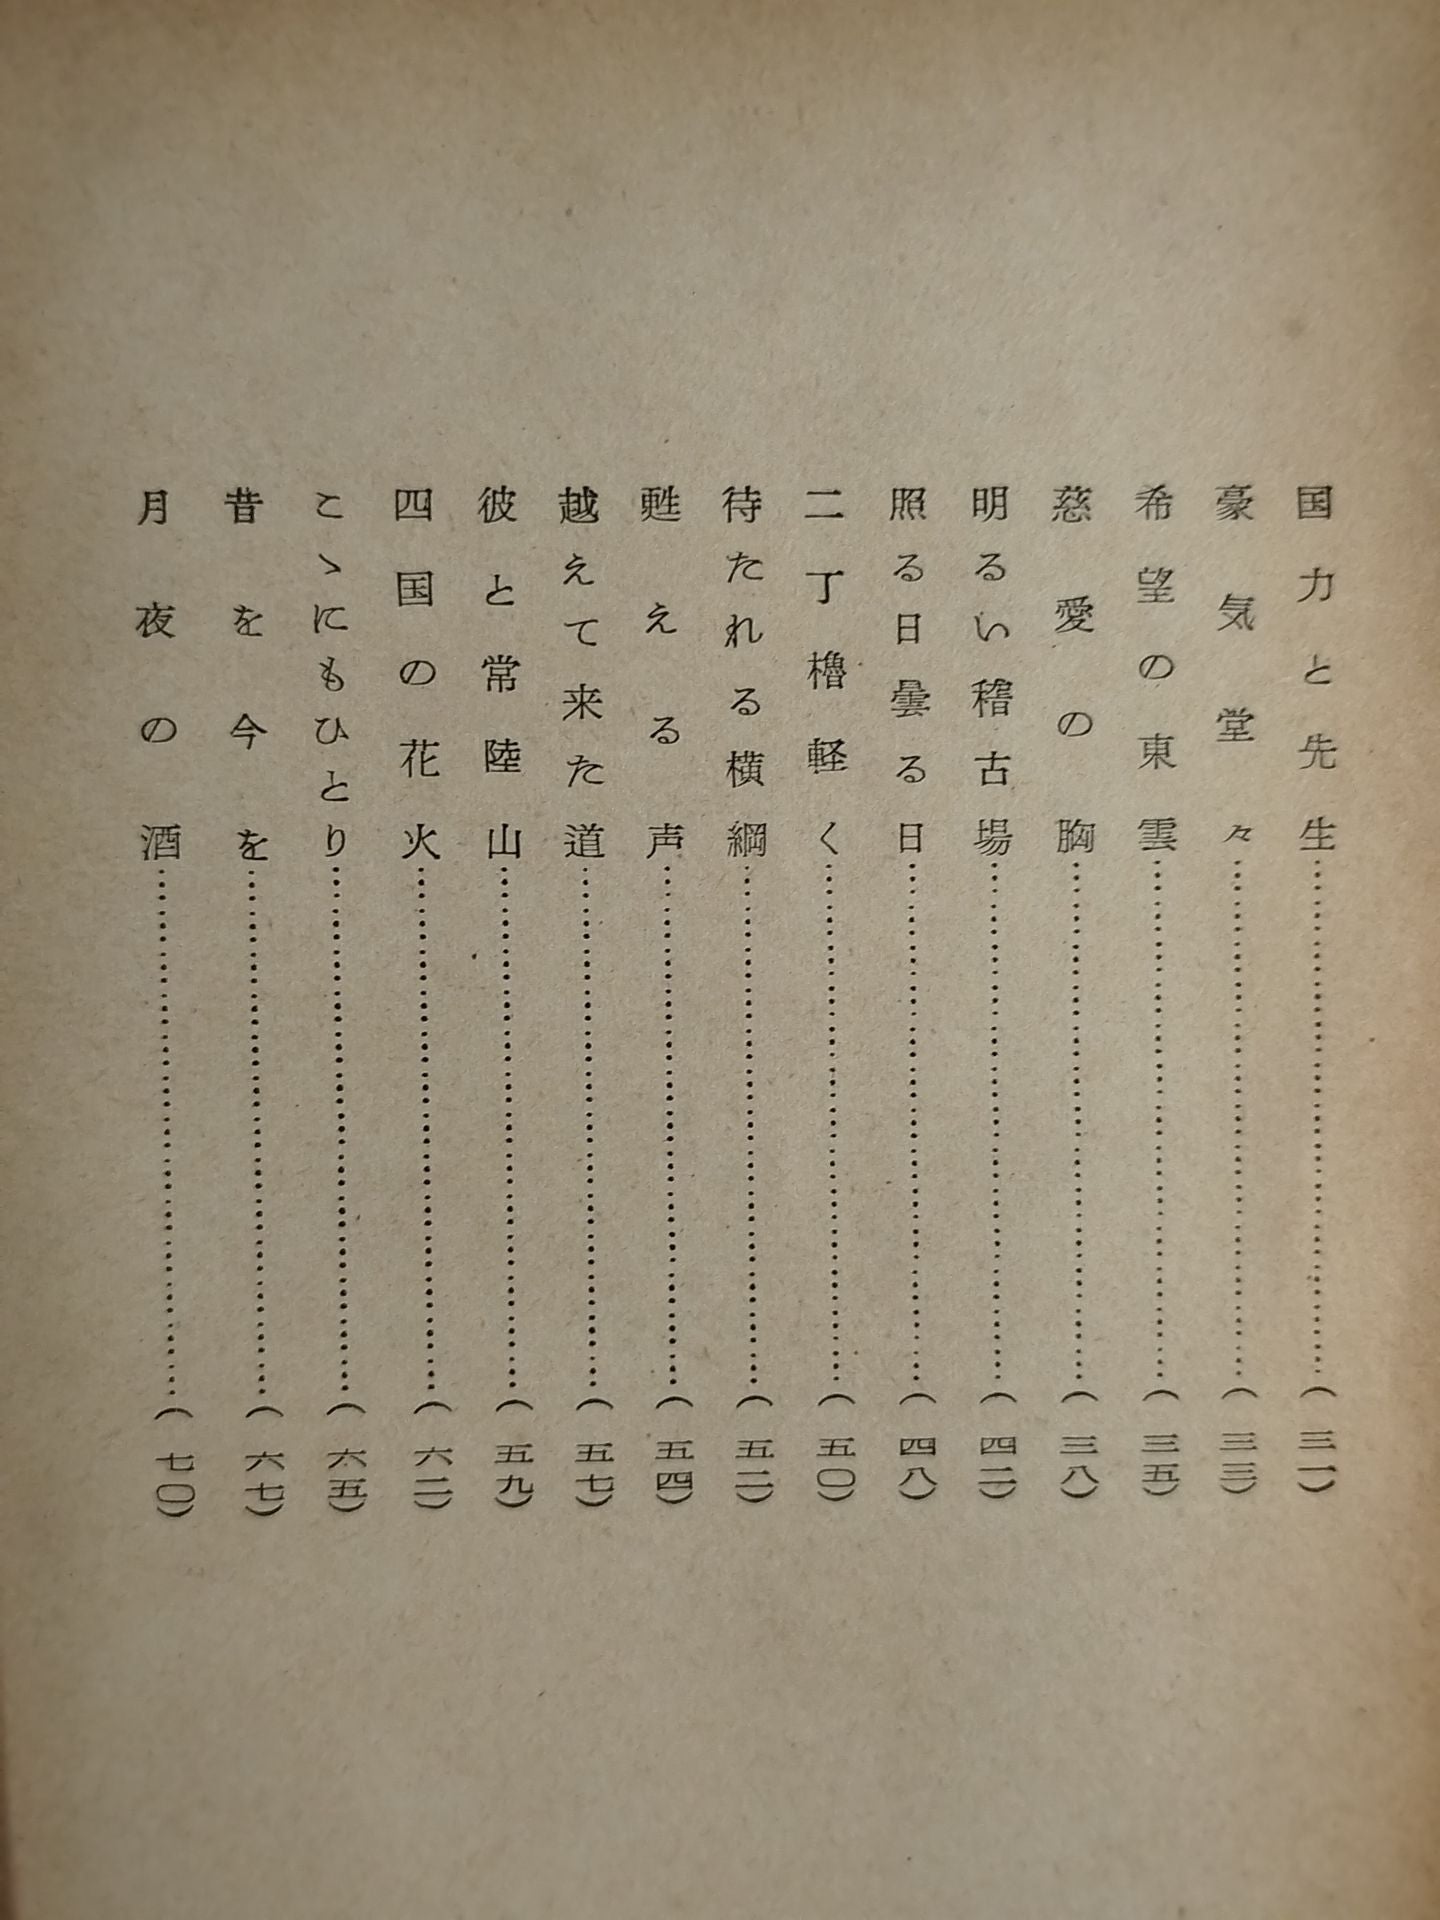 国力と先生……(三一)
豪気堂々……(三三)
希望の東雲……(三五)
慈愛の胸……(三八)
明るい稽古場……(四二)
照る日曇る日……(四八)
二丁櫓軽く……(五〇)
待たれる横綱……(五二)
甦える声……(五四)
越えて来た道……(五七)
彼と常陸山……(五九)
四国の花火……(六二)
こゝにもひとり……(六五)
昔を今を……(六七)
月夜の酒……(七〇)